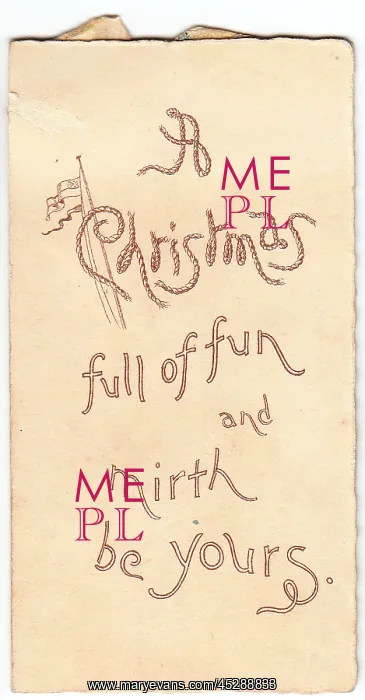 A
ME
PL
Christmas
full of fun
and
ME
mirth
PL
be yours.
www.maryevans.com/45288893